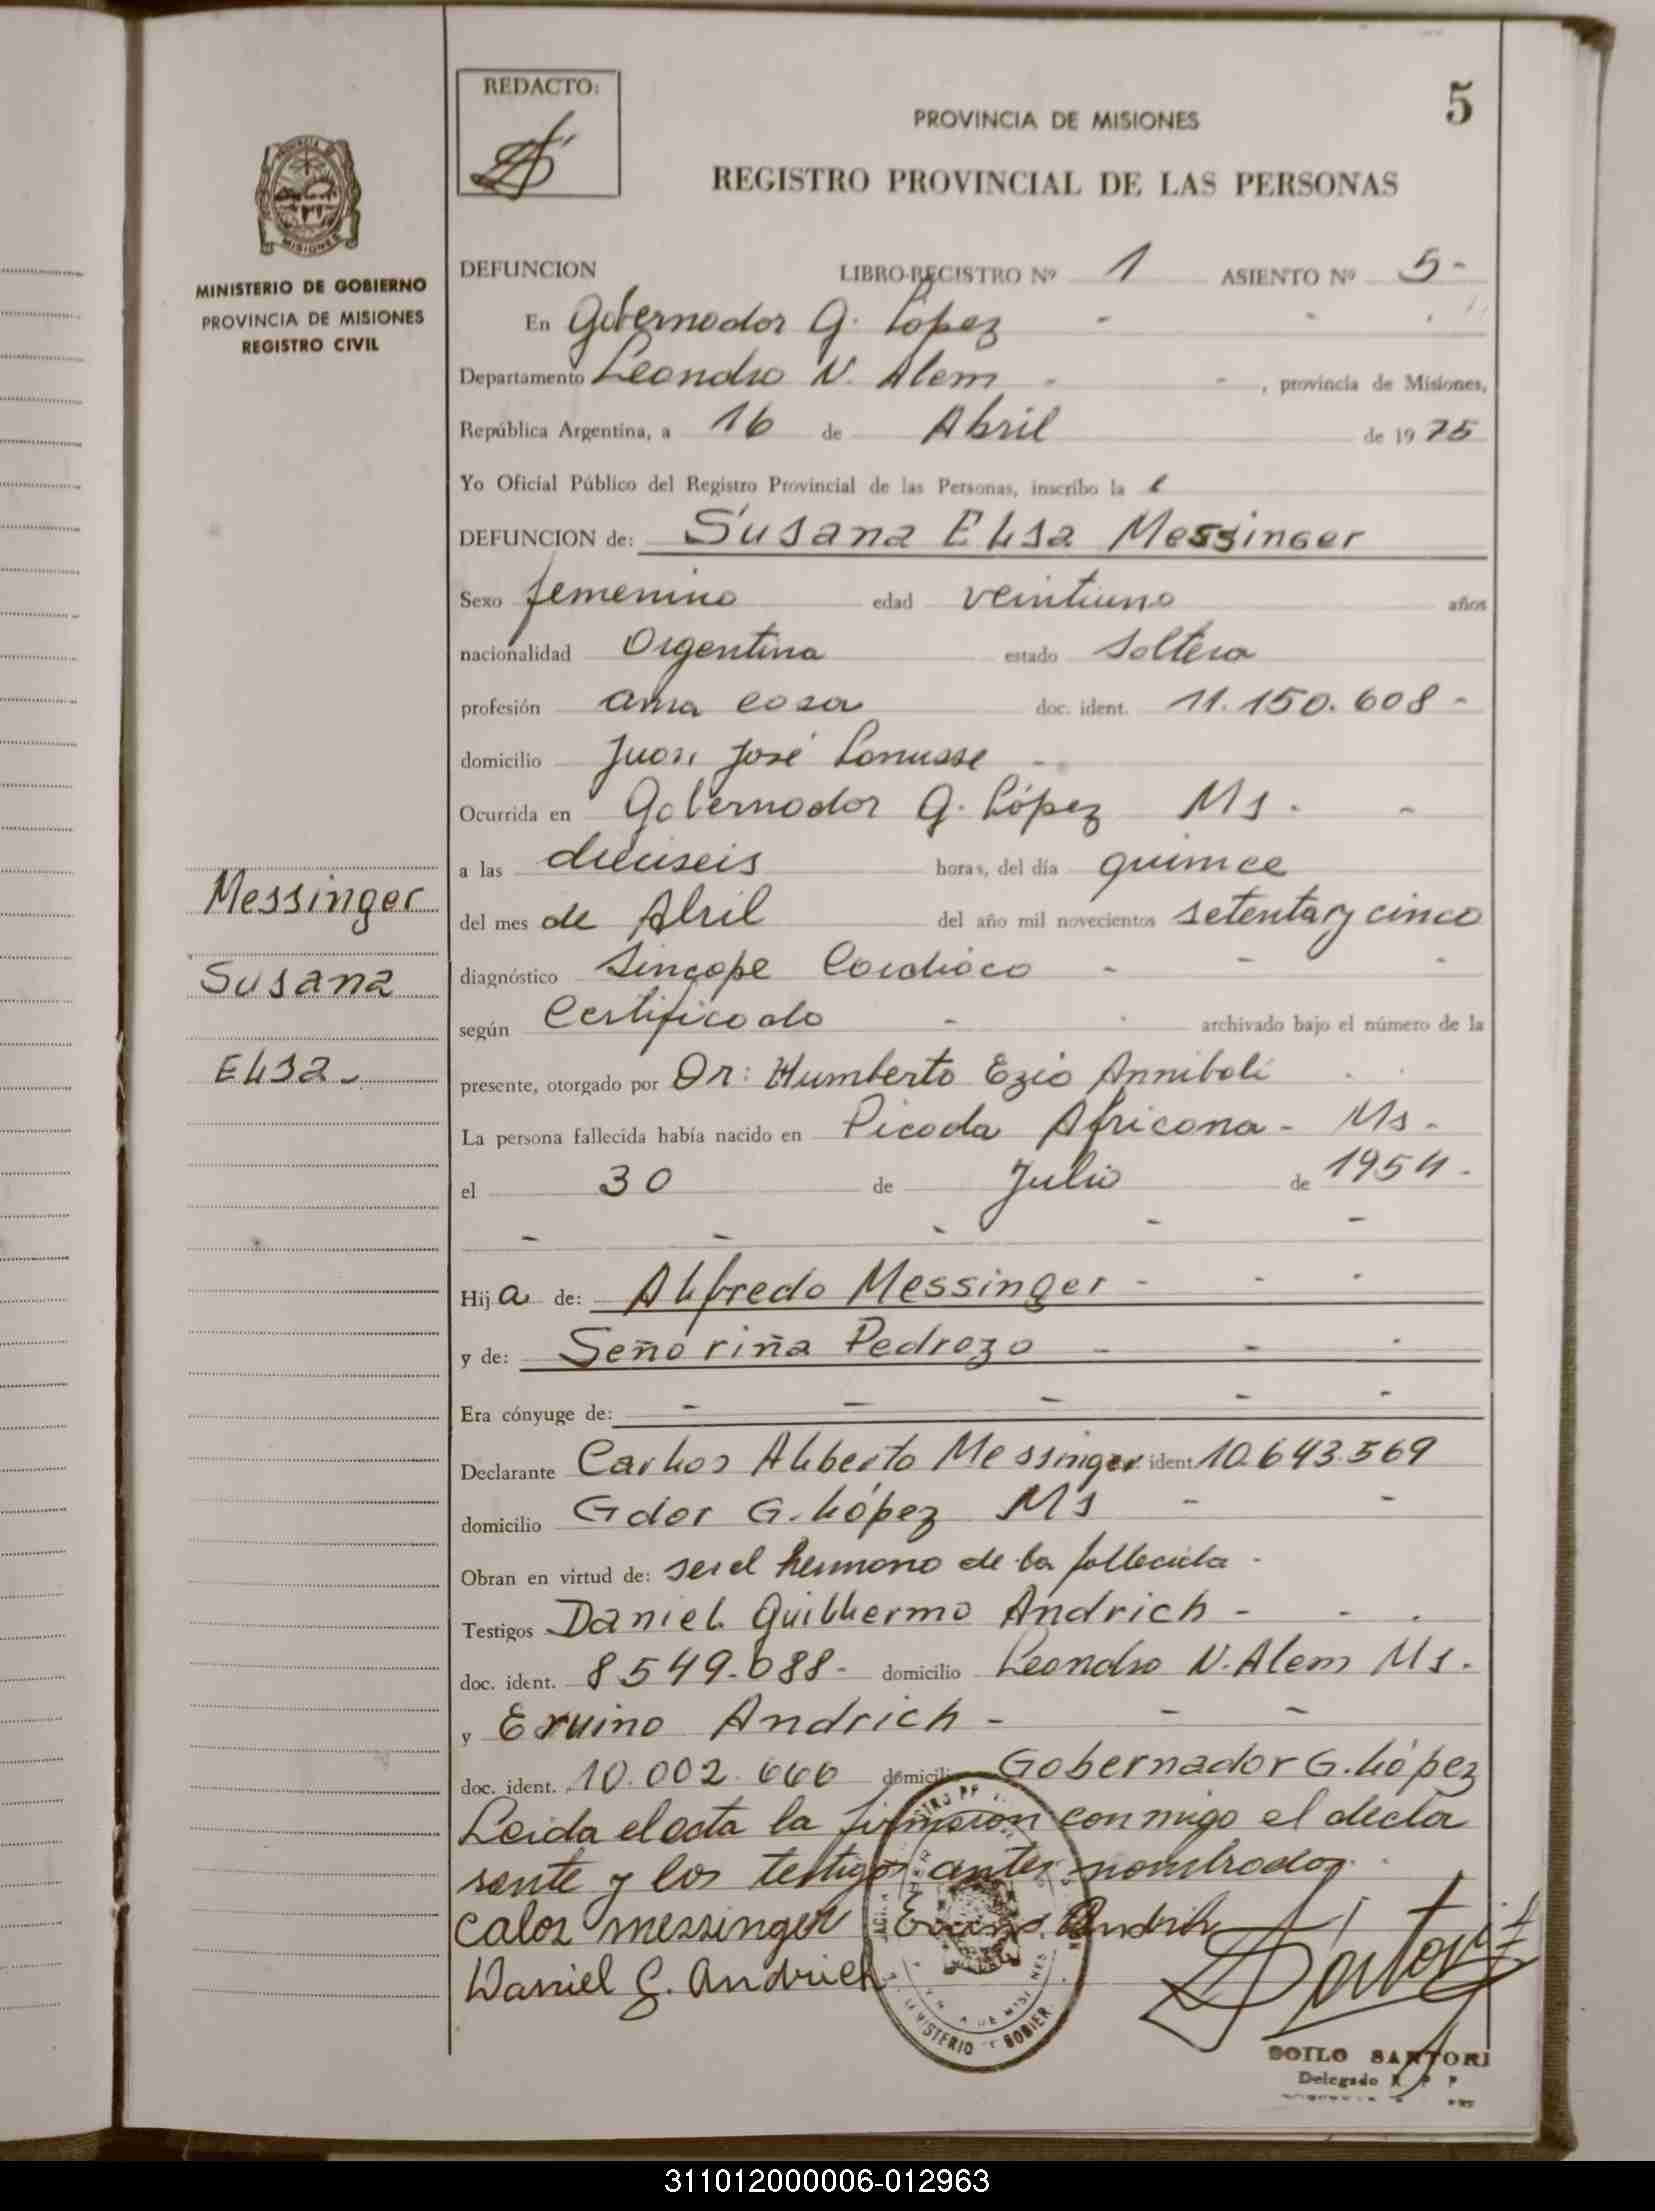 REDACTO:
5
PROVINCIA DE MISIONES
REGISTRO PROVINCIAL DE LAS PERSONAS
MISIONES
MINISTERIO DE GOBIERNO
PROVINCIA DE MISIONES
REGISTRO CIVIL
DEFUNCION LIBRO-REGISTRO Nº 1 ASIENTO Nº 5-
En Gobernador G. López - -
Departamento Leandro N. Alem - - , provincia de Misiones,
República Argentina, a 16 de Abril de 1975
Yo Oficial Público del Registro Provincial de las Personas, inscribo la
DEFUNCION de: Susana Elsa Messinger
Sexo femenino edad veintiuno años
nacionalidad Argentina estado Soltera
profesión ama casa doc. ident. 11.150.608-
domicilio Juan José Lanusse -
Ocurrida en Gobernador G. López Ms. -
a las dieciseis horas, del día quince
del mes de Abril del año mil novecientos setenta y cinco
diagnóstico Sincope Cardiaco - - -
según Certificado - - archivado bajo el número de la
presente, otorgado por Dr: Humberto Ezio Annibali
La persona fallecida había nacido en Picada Africana - Ms.
el 30 de Julio de 1954-
- - - - -
Hija de: Alfredo Messinger - - -
y de: Señoriña Pedrozo - - -
Era cónyuge de: - - - - -
Declarante Carlos Alberto Messinger ident. 10.643.569
domicilio Gdor G. López Ms - -
Obran en virtud de: ser el hermano de la fallecida -
Testigos Daniel Guillermo Andrich - - .
doc. ident. 8549.088- domicilio Leandro N. Alem Ms.
y Eruino Andrich - - -
doc. ident. 10.002.666 domicilio Gobernador G. López
Leida el acta la firmaron conmigo el decla
rante y los testigos antes nombrados.
Calos messinger Eruino Andrich
Daniel G. Andrich
SOILO SANTORI
Delegado
MINISTERIO DE GOBIER
Messinger
Susana
Elsa-
311012000006-012963